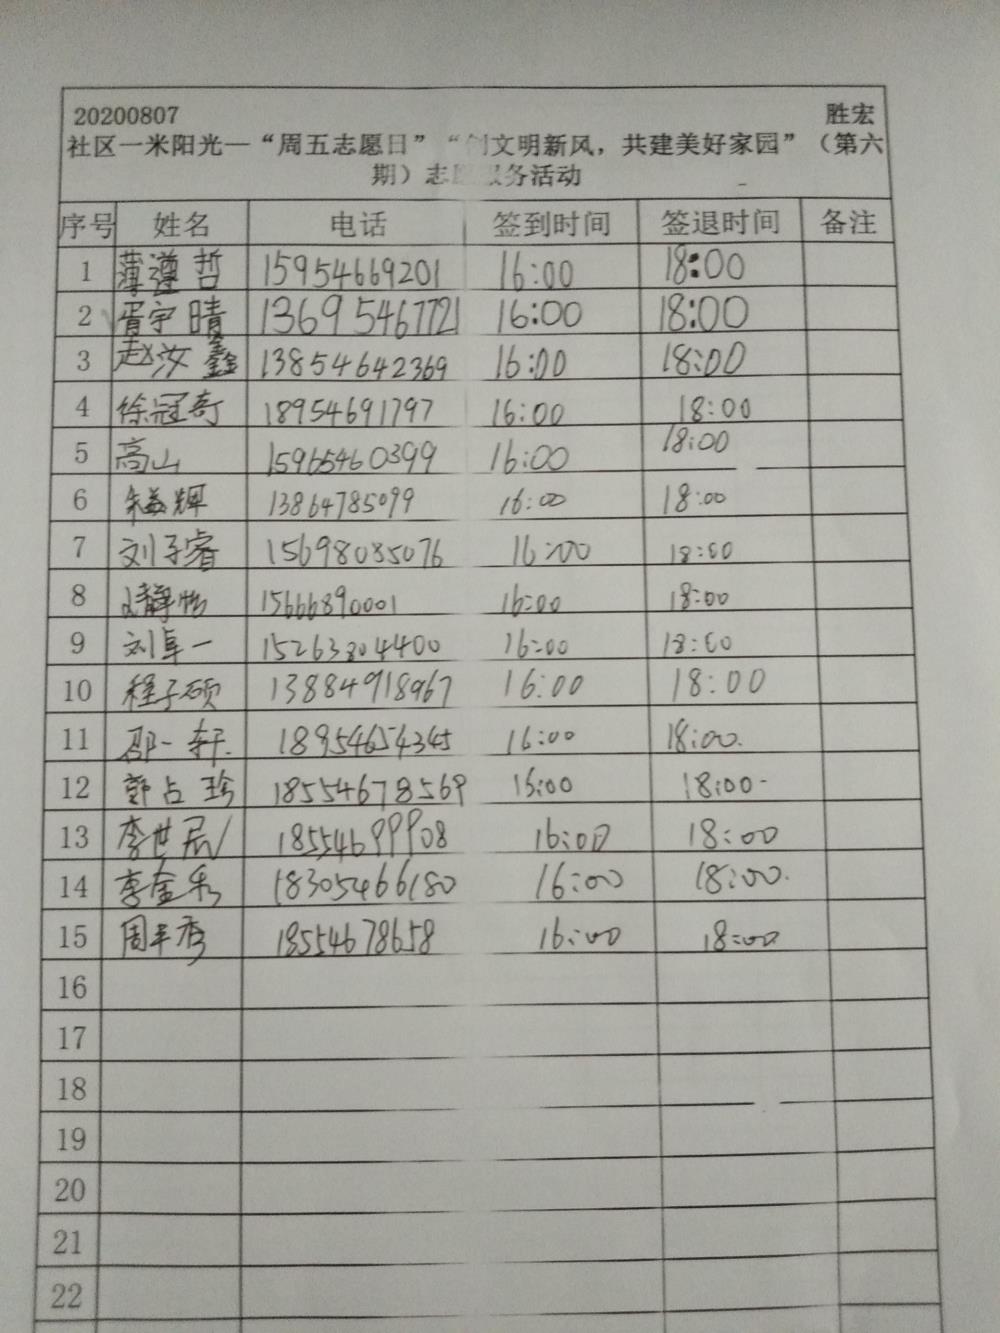 20200807 胜宏
社区一米阳光—“周五志愿日”“创文明新风，共建美好家园”（第六
期）志愿服务活动
序号 姓名 电话 签到时间 签退时间 备注
1 薄遵哲 15954669201 16:00 18:00
2 胥宇晴 13695467721 16:00 18:00
3 赵汝鑫 13854642369 16:00 18:00
4 徐冠奇 18954691797 16:00 18:00
5 高山 15965460399 16:00 18:00
6 13864785099 16:00 18:00
7 刘子睿 15698085076 16:00 18:00
8 15666890001 16:00 18:00
9 刘卓一 15263804400 16:00 18:00
10 程子硕 13884918967 16:00 18:00
11 邵一轩 18954654345 16:00 18:00
12 郭占珍 18554678569 16:00 18:00
13 李世辰 18554699908 16:00 18:00
14 李金秀 18305466180 16:00 18:00
15 周平秀 18554678658 16:00 18:00
16
17
18
19
20
21
22